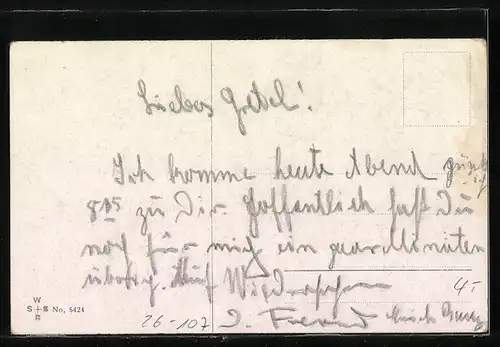 Liebes Gretel!
Ich komme heute Abend
8 15 zu Dir. Hoffentlich hast Du
noch für mich ein paar Minuten
übrig. Auf Wiedersehen
D. Freund
4.-
W
S+S No, 5424
B
26-107